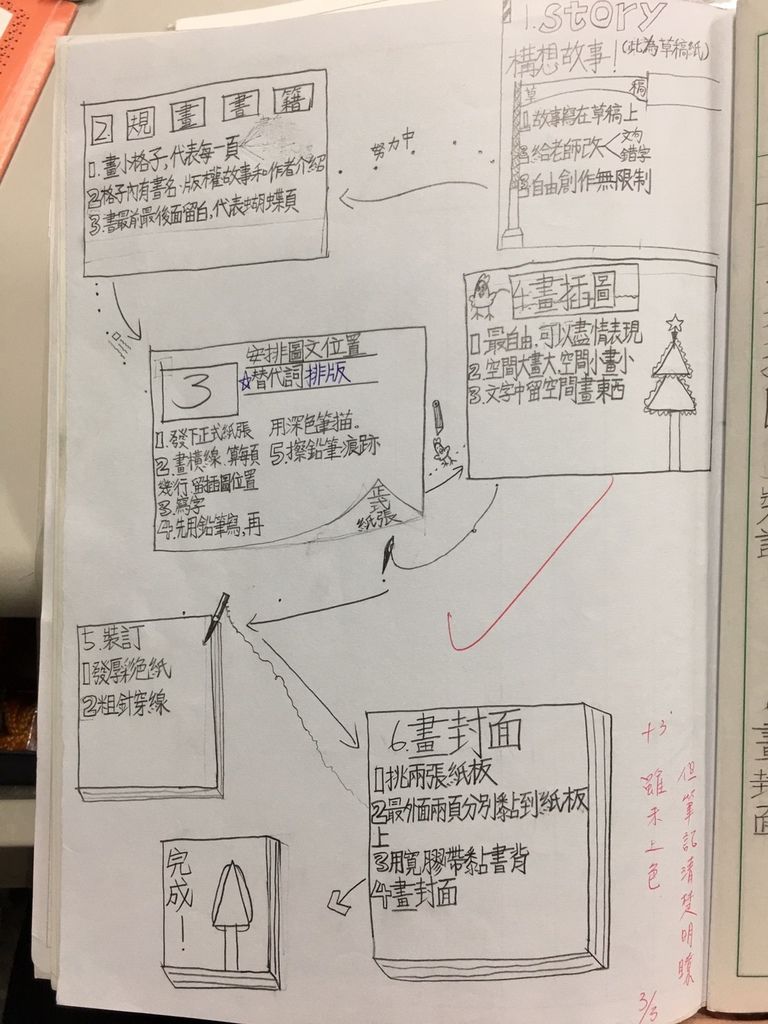 1.story
構想故事！(此為草稿紙)
草稿
1.故事寫在草稿上
2.給老師改<文句
錯字
3.自由創作無限制
努力中
2.規畫書籍
1.畫小格子,代表每一頁
2.格子內有書名、版權故事和作者介紹
3.書最前最後面留白,代表蝴蝶頁
安排圖文位置
3
☆替代詞排版
1.發下正式紙張
2.畫橫線、算每頁
幾行、留插圖位置
3.寫字
4.先用鉛筆寫,再
用深色筆描。
5.擦鉛筆痕跡
正式
紙張
4.畫插圖
1.最自由,可以盡情表現
2.空間大畫大,空間小畫小
3.文字中留空間畫東西
5.裝訂
1.發厚彩色紙
2.粗針穿線
6.畫封面
1.挑兩張紙板
2.最外面兩頁分別黏到紙板
上
3.用寬膠帶黏書背
4.畫封面
完成！
+3
雖未上色
但筆記清楚明瞭
3/3
畫封面